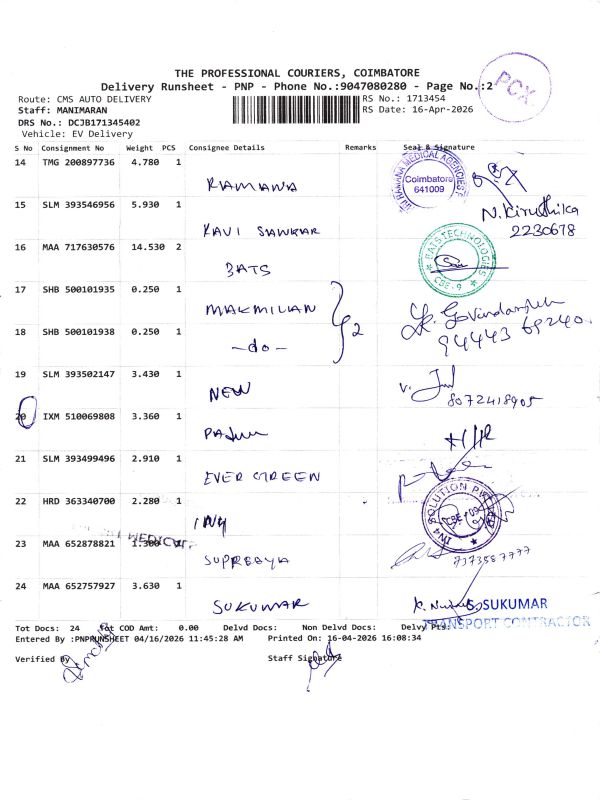 THE PROFESSIONAL COURIERS, COIMBATORE
Delivery Runsheet - PNP - Phone No.:9047080280 - Page No.:2
PCX
Route: CMS AUTO DELIVERY
RS No.: 1713454
Staff: MANIMARAN
RS Date: 16-Apr-2026
DRS No.: DCJB171345402
Vehicle: EV Delivery
S No Consignment No Weight PCS Consignee Details Remarks Seal & Signature
14 TMG 200897736 4.780 1
RAMANA
RAMANA MEDICAL AGENCIES
Coimbatore
641009
15 SLM 393546956 5.930 1
RAVI SANKAR
N. Kiruthika
2230678
16 MAA 717630576 14.530 2
BATS
BATS TECHNOLOGIES
CBE-9
17 SHB 500101935 0.250 1
MAKMILIAN
2
18 SHB 500101938 0.250 1
-do-
94443 69240
19 SLM 393502147 3.430 1
NEW
8072418905
20 IXM 510069808 3.360 1
21 SLM 393499496 2.910 1
EVER GREEN
22 HRD 363340700 2.280 1
IN4
IN4 SOLUTION
CBE-09
23 MAA 652878821 1.300 1
SUPREEYA
7373587777
24 MAA 652757927 3.630 1
SUKUMAR
SUKUMAR
TRANSPORT CONTRACTOR
Tot Docs: 24 Tot COD Amt: 0.00 Delvd Docs: Non Delvd Docs: Delvy Pts:
Entered By :PNPRUNSHEET 04/16/2026 11:45:28 AM Printed On: 16-04-2026 16:08:34
Verified By
Staff Signature